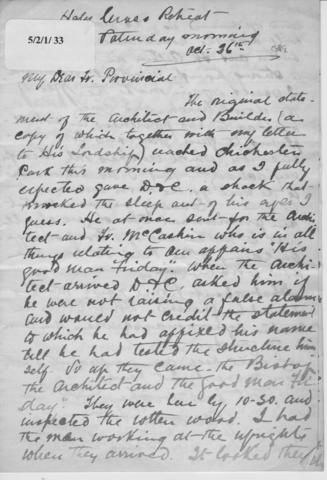 Holy Cross Retreat
5/2/1/33
Saturday morning
Oct. 26th
My Dear Fr. Provincial
The original state-
ment of the Architect and Builder (a
copy of which together with my letter
to His Lordship) reached Chichester
Park this morning and as I fully
expected gave D. & C. a shock that
knocked the sleep out of his eyes I
guess. He at once sent for the Archi-
tect and Fr. McCashin who is in all
things relating to our affairs "His
good man Friday". When the Archi-
tect arrived D & C. asked him if
he were not raising a false alarm
and would not credit the statement
to which he had affixed his name
till he had tested the structure him
self. So up they came - the Bishop
the Architect and "the good Man Fri
day". They were here by 10-30. and
inspected the rotten wood. I had
the men working at the uprights
when they arrived. It looked